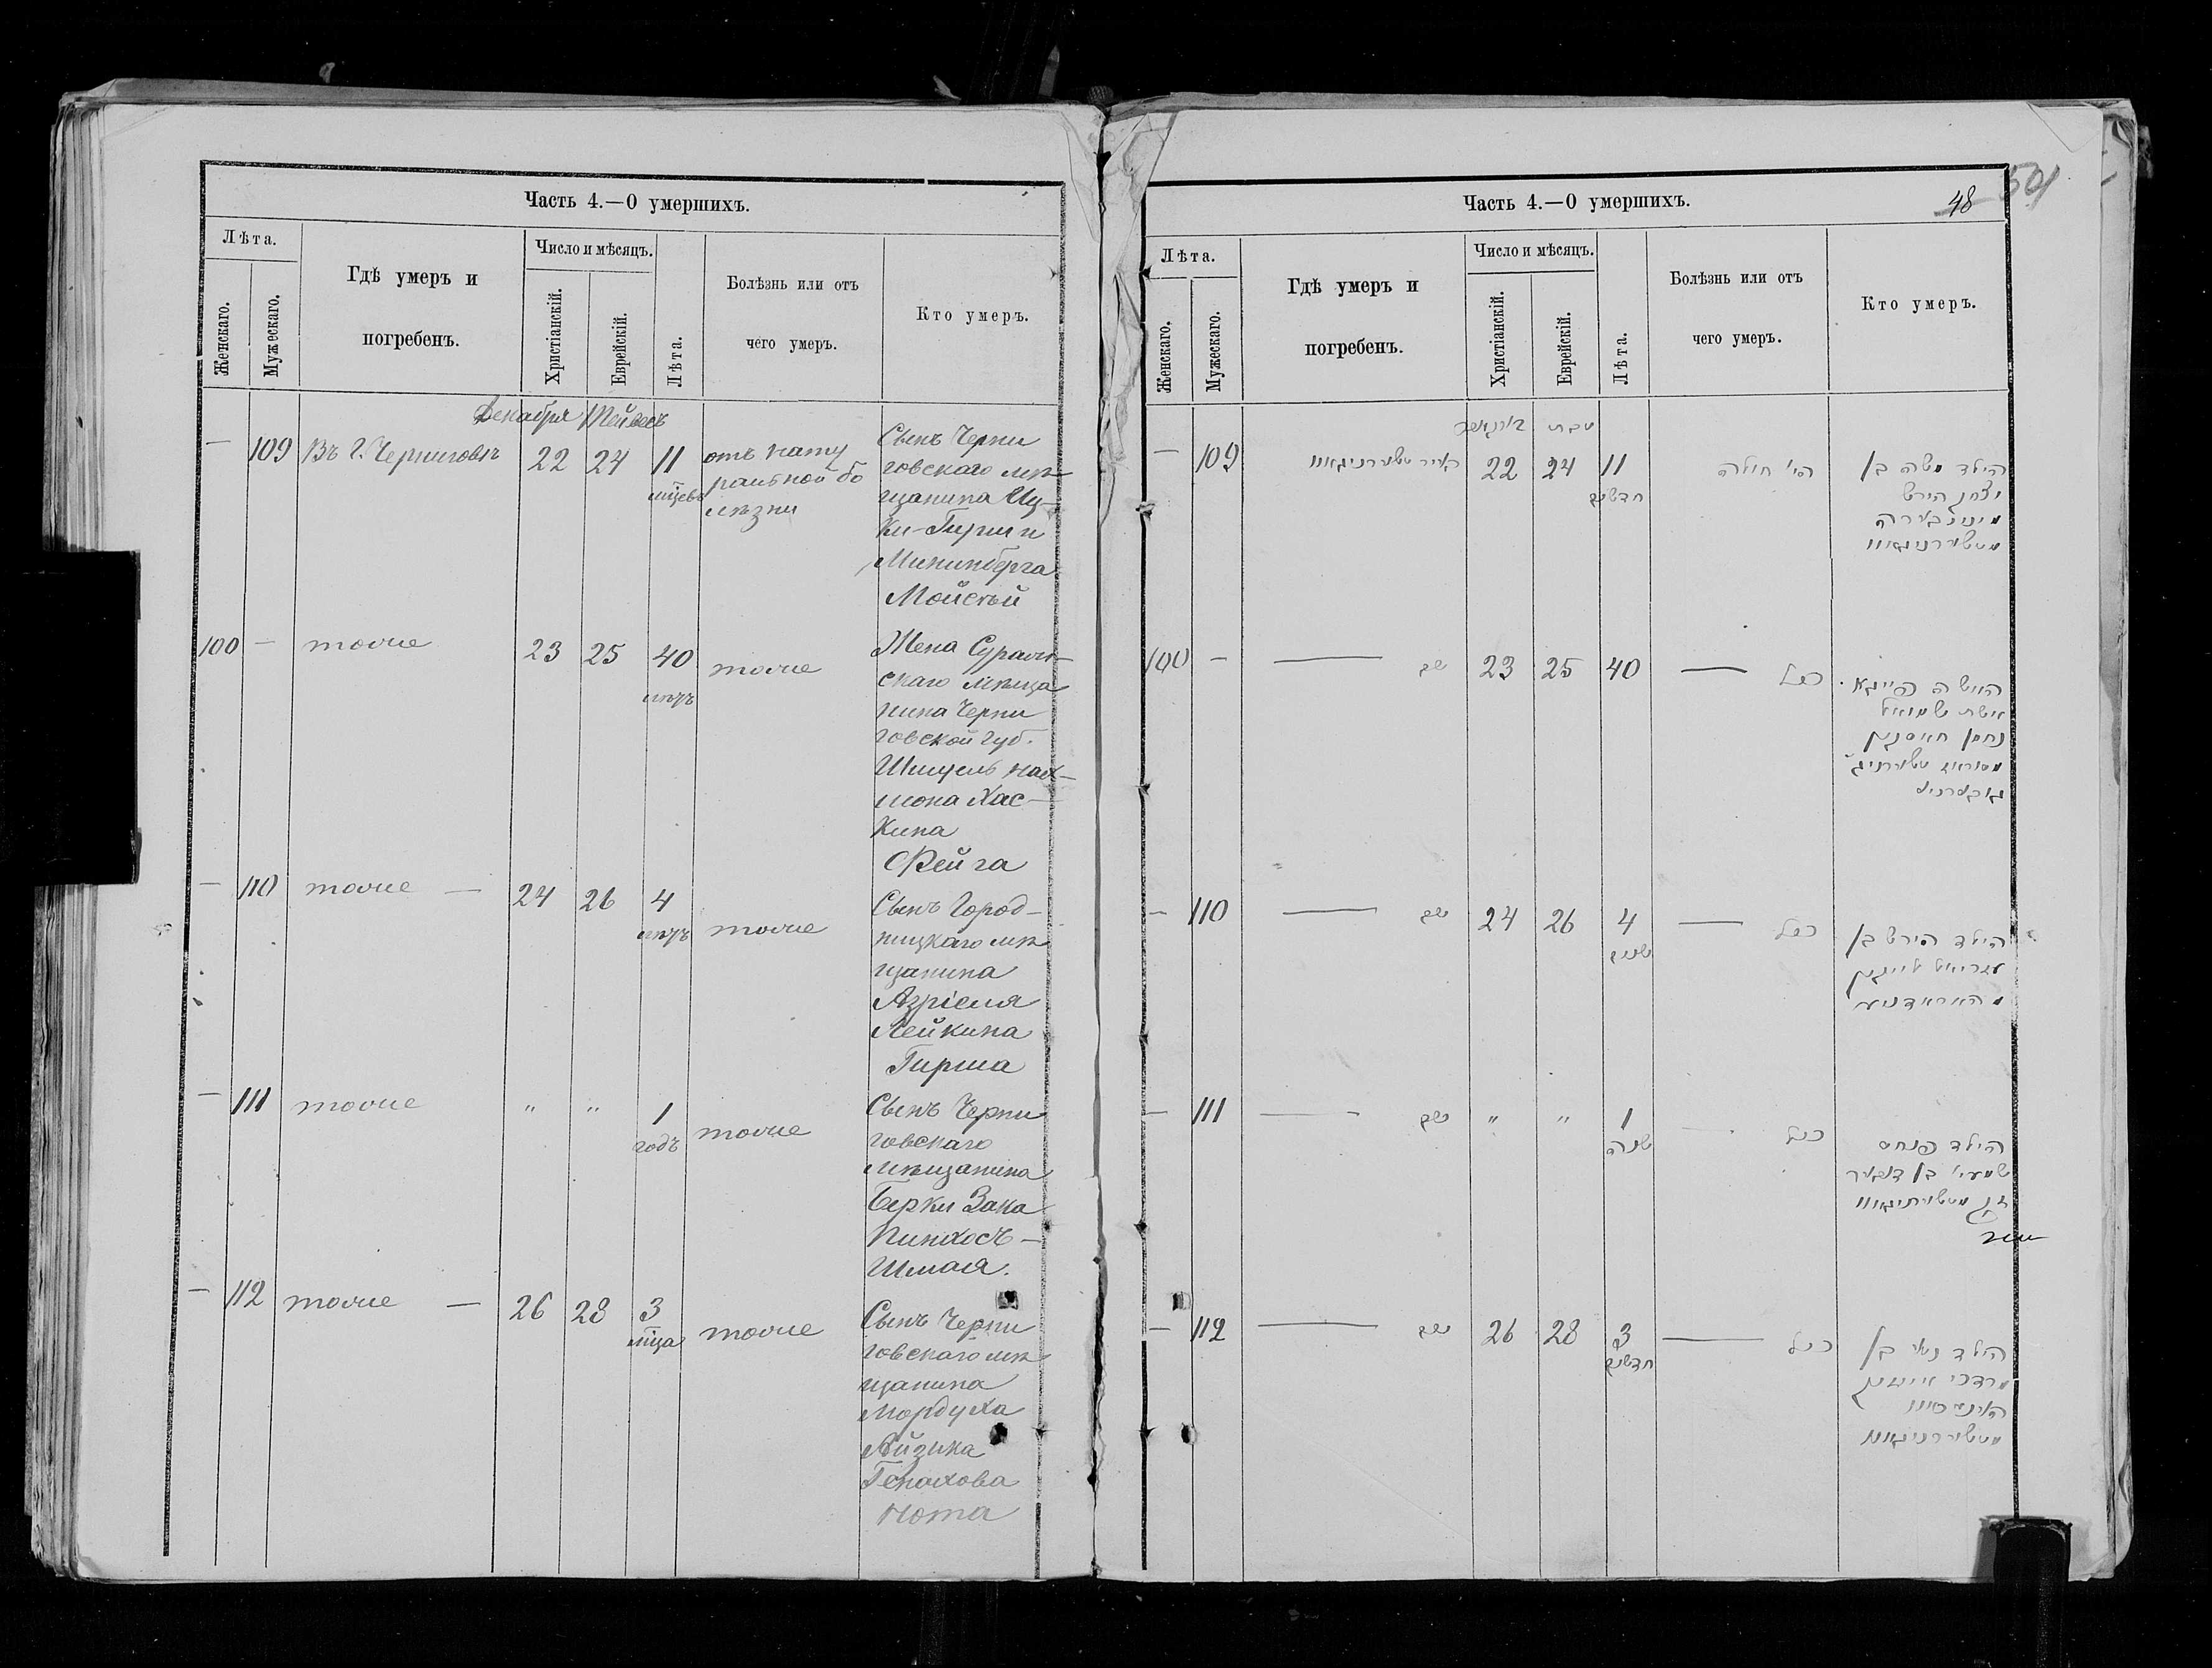 Часть 4.—О умершихъ.
Лѣта.
Женскаго.
Мужескаго.
Гдѣ умеръ и
погребенъ.
Число и мѣсяцъ.
Христіанскій.
Еврейскій.
Лѣта.
Болѣзнь или отъ
чего умеръ.
Кто умеръ.
Декабря Тейвесъ
— 109 Въ г. Черниговѣ 22 24 11
мцевъ
отъ нату
ральной бо
лѣзни
Сынъ Черни
говскаго мѣ-
щанина Иц-
ки-Гирши
Мининберга
Мойсѣй
100 — тоже 23 25 40
лѣтъ
тоже
Жена Суражъ-
скаго мѣща
нина Черни
говской губ.
Шмуель Нах-
мона Хас-
кина
Фейга
— 110 тоже — 24 26 4
лѣтъ
тоже
Сынъ Город-
ницкаго мѣ
щанина
Азріеля
Лейкина
Гирша
— 111 тоже " " 1
годъ
тоже
Сынъ Черни
говскаго
мѣщанина
Берки Зака
Пинхосъ-
Шмая.
— 112 тоже — 26 28 3
мца
тоже
Сынъ Черни
говскаго мѣ
щанина
Мордуха
Айзика
Генахова
Нота
Часть 4.—О умершихъ.
48
501
Лѣта.
Женскаго.
Мужескаго.
Гдѣ умеръ и
погребенъ.
Число и мѣсяцъ.
Христіанскій.
Еврейскій.
Лѣта.
Болѣзнь или отъ
чего умеръ.
Кто умеръ.
דעקאבר טבת
— 109 22 24 11
חדשים
חולה
הילד משה בן
יצחק הירש
מטשערניגאוו
100 — — שם 23 25 40 — כנל
האשה פייגא
אשת שמואל
נחמן חאסקין
— 110 — שם 24 26 4
שנים
— כנל
הילד הירש בן
עזריאל לייקין
— 111 — שם " " 1
שנה
— כנל
הילד פנחס
שמעי' בן
זק מטשערניגאוו
— 112 — שם 26 28 3
חדשים
— כנל
הילד נטע בן
מרדכי אייזיק
מטשערניגאוו